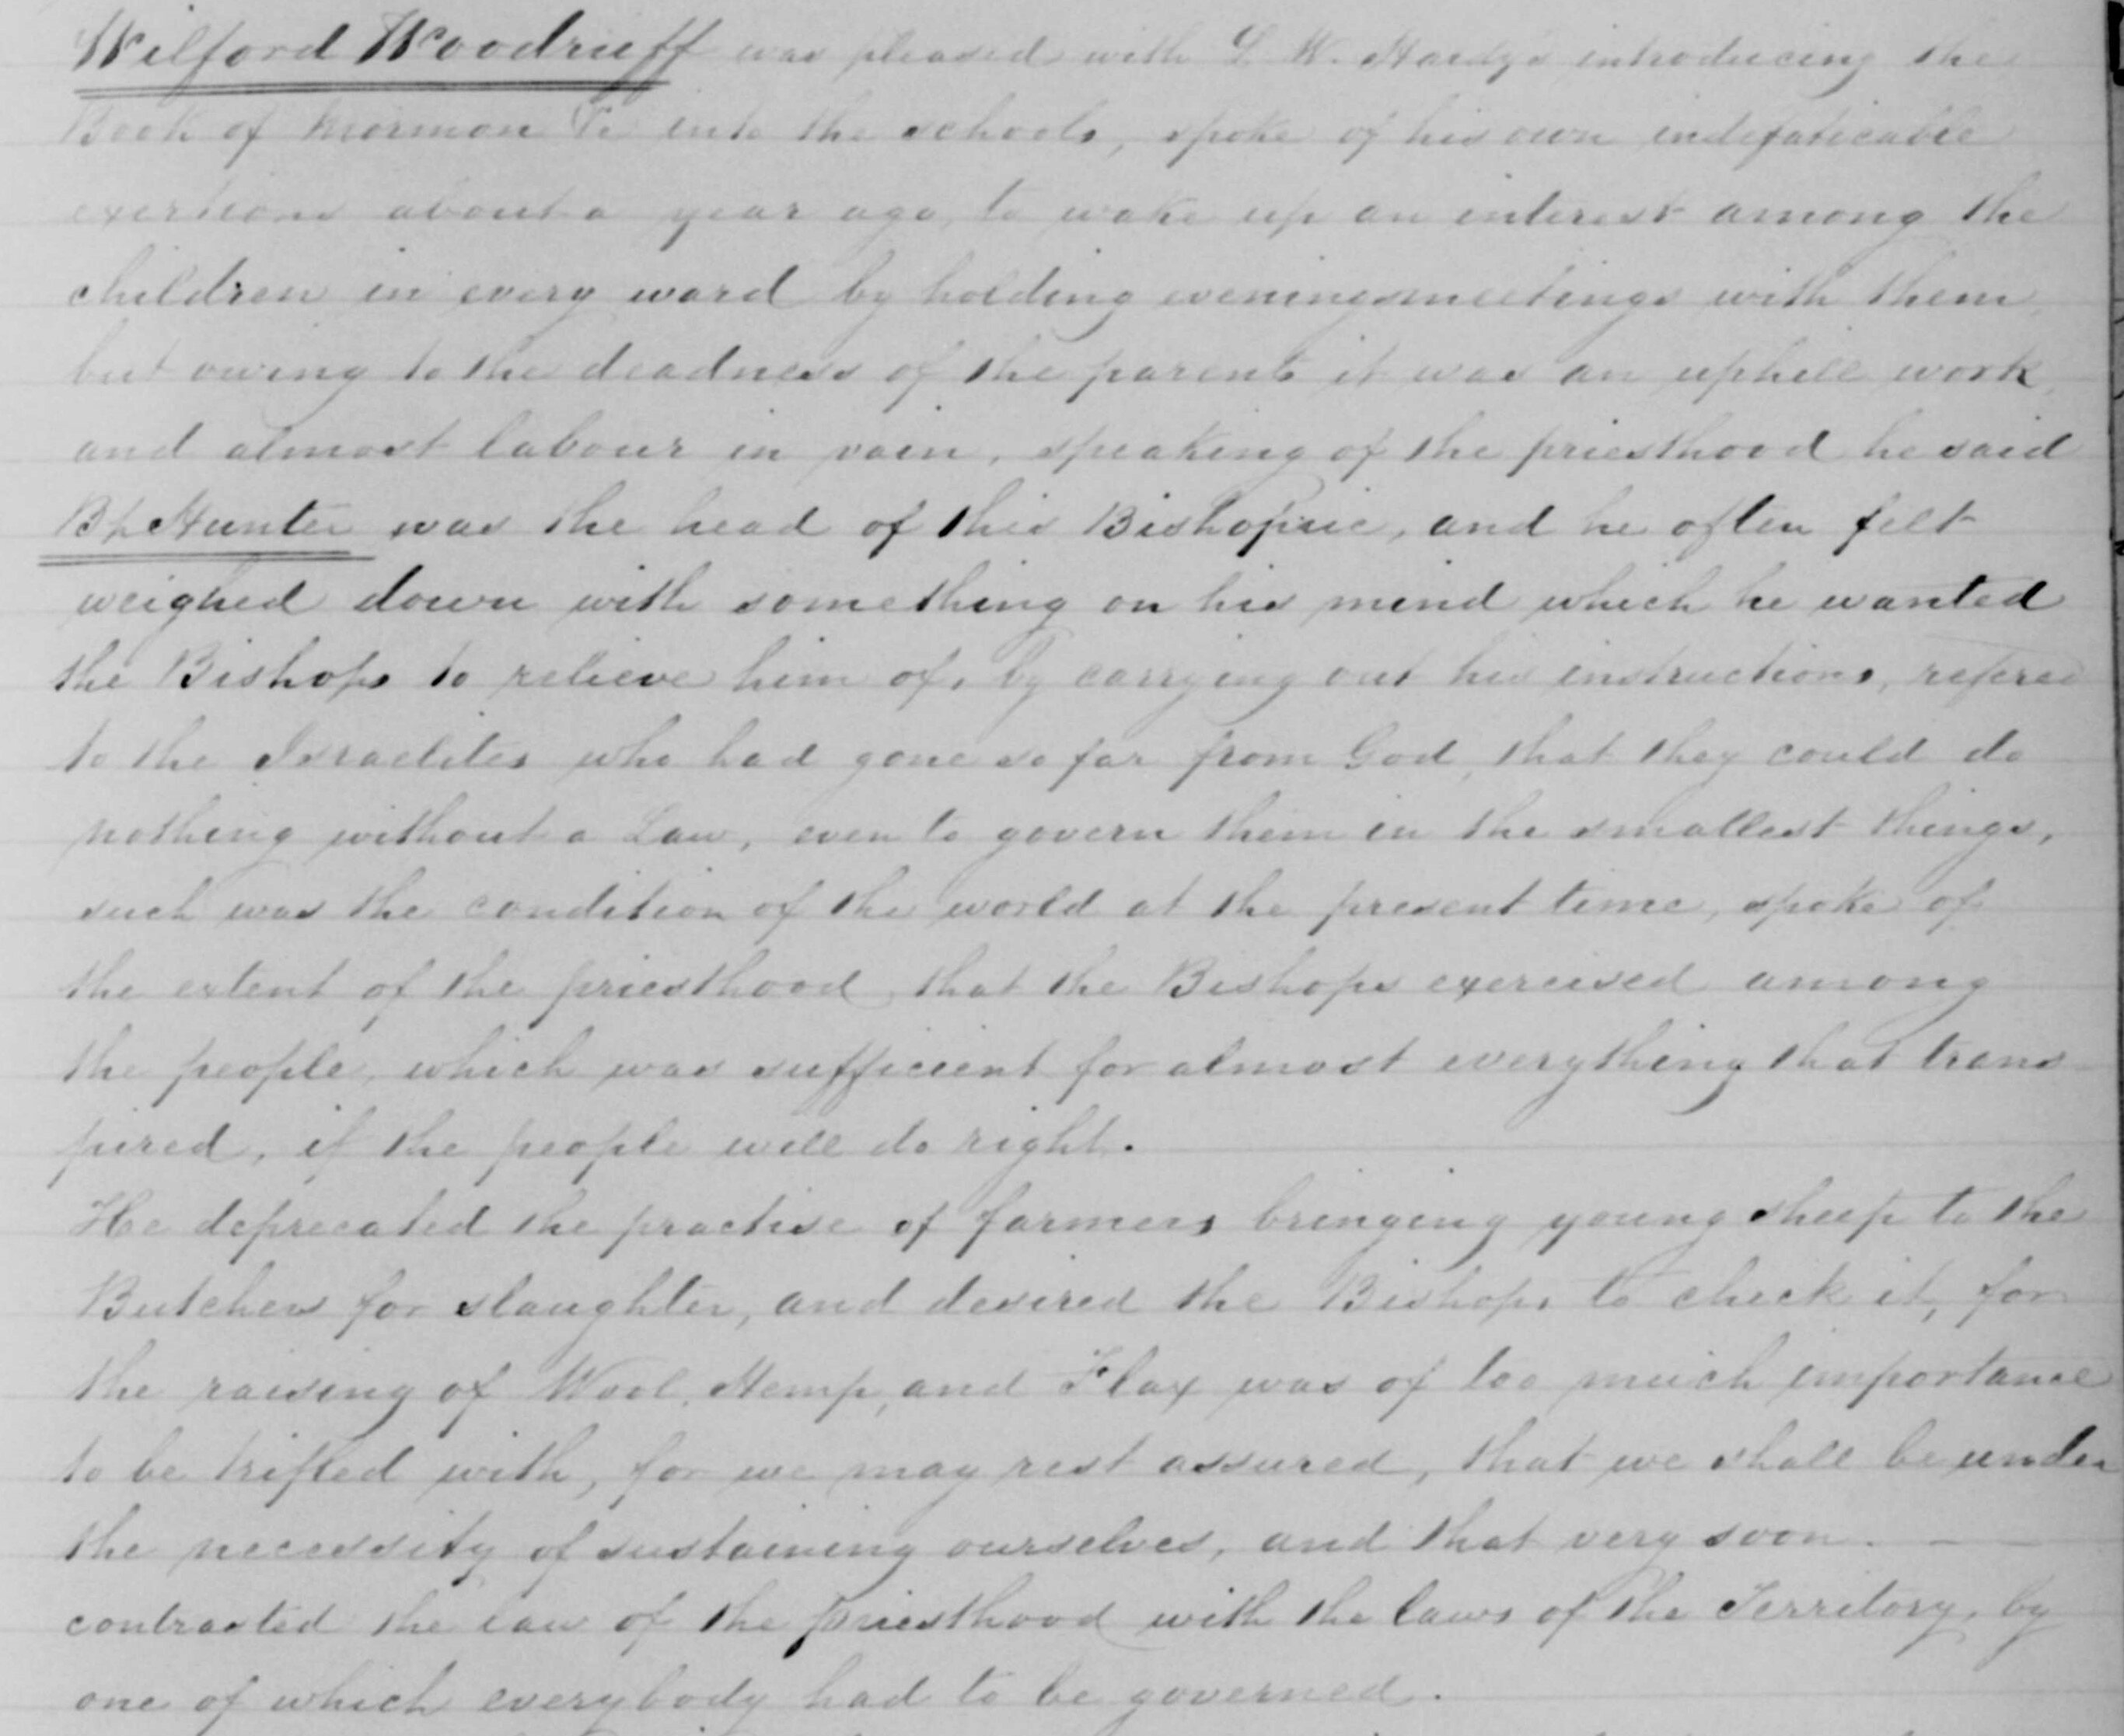 Wilford Woodruff was pleased with L. W. Hardy's introducing the
Book of Mormon &c into the schools, spoke of his own indefaticable
exertions about a year ago, to wake up an interest among the
children in every ward by holding evening meetings with them,
but owing to the deadness of the parents it was an uphill work,
and almost labour in vain, speaking of the priesthood he said
Bp Hunter was the head of this Bishopric, and he often felt
weighed down with something on his mind which he wanted
the Bishops to relieve him of, by carrying out his instructions, refered
to the Israelites who had gone so far from God, that they could do
nothing without a Law, even to govern them in the smallest things,
such was the condition of the world at the present time, spoke of
the extent of the priesthood that the Bishops exercised among
the people, which was sufficient for almost everything that trans
pired, if the people will do right.
He deprecated the practise of farmers bringing young sheep to the
Butchers for slaughter, and desired the Bishops to check it, for
the raising of Wool, Hemp, and Flax was of too much importance
to be trifled with, for we may rest assured, that we shall be under
the necessity of sustaining ourselves, and that very soon. — —
contrasted the law of the priesthood with the laws of the Territory, by
one of which everybody had to be governed.